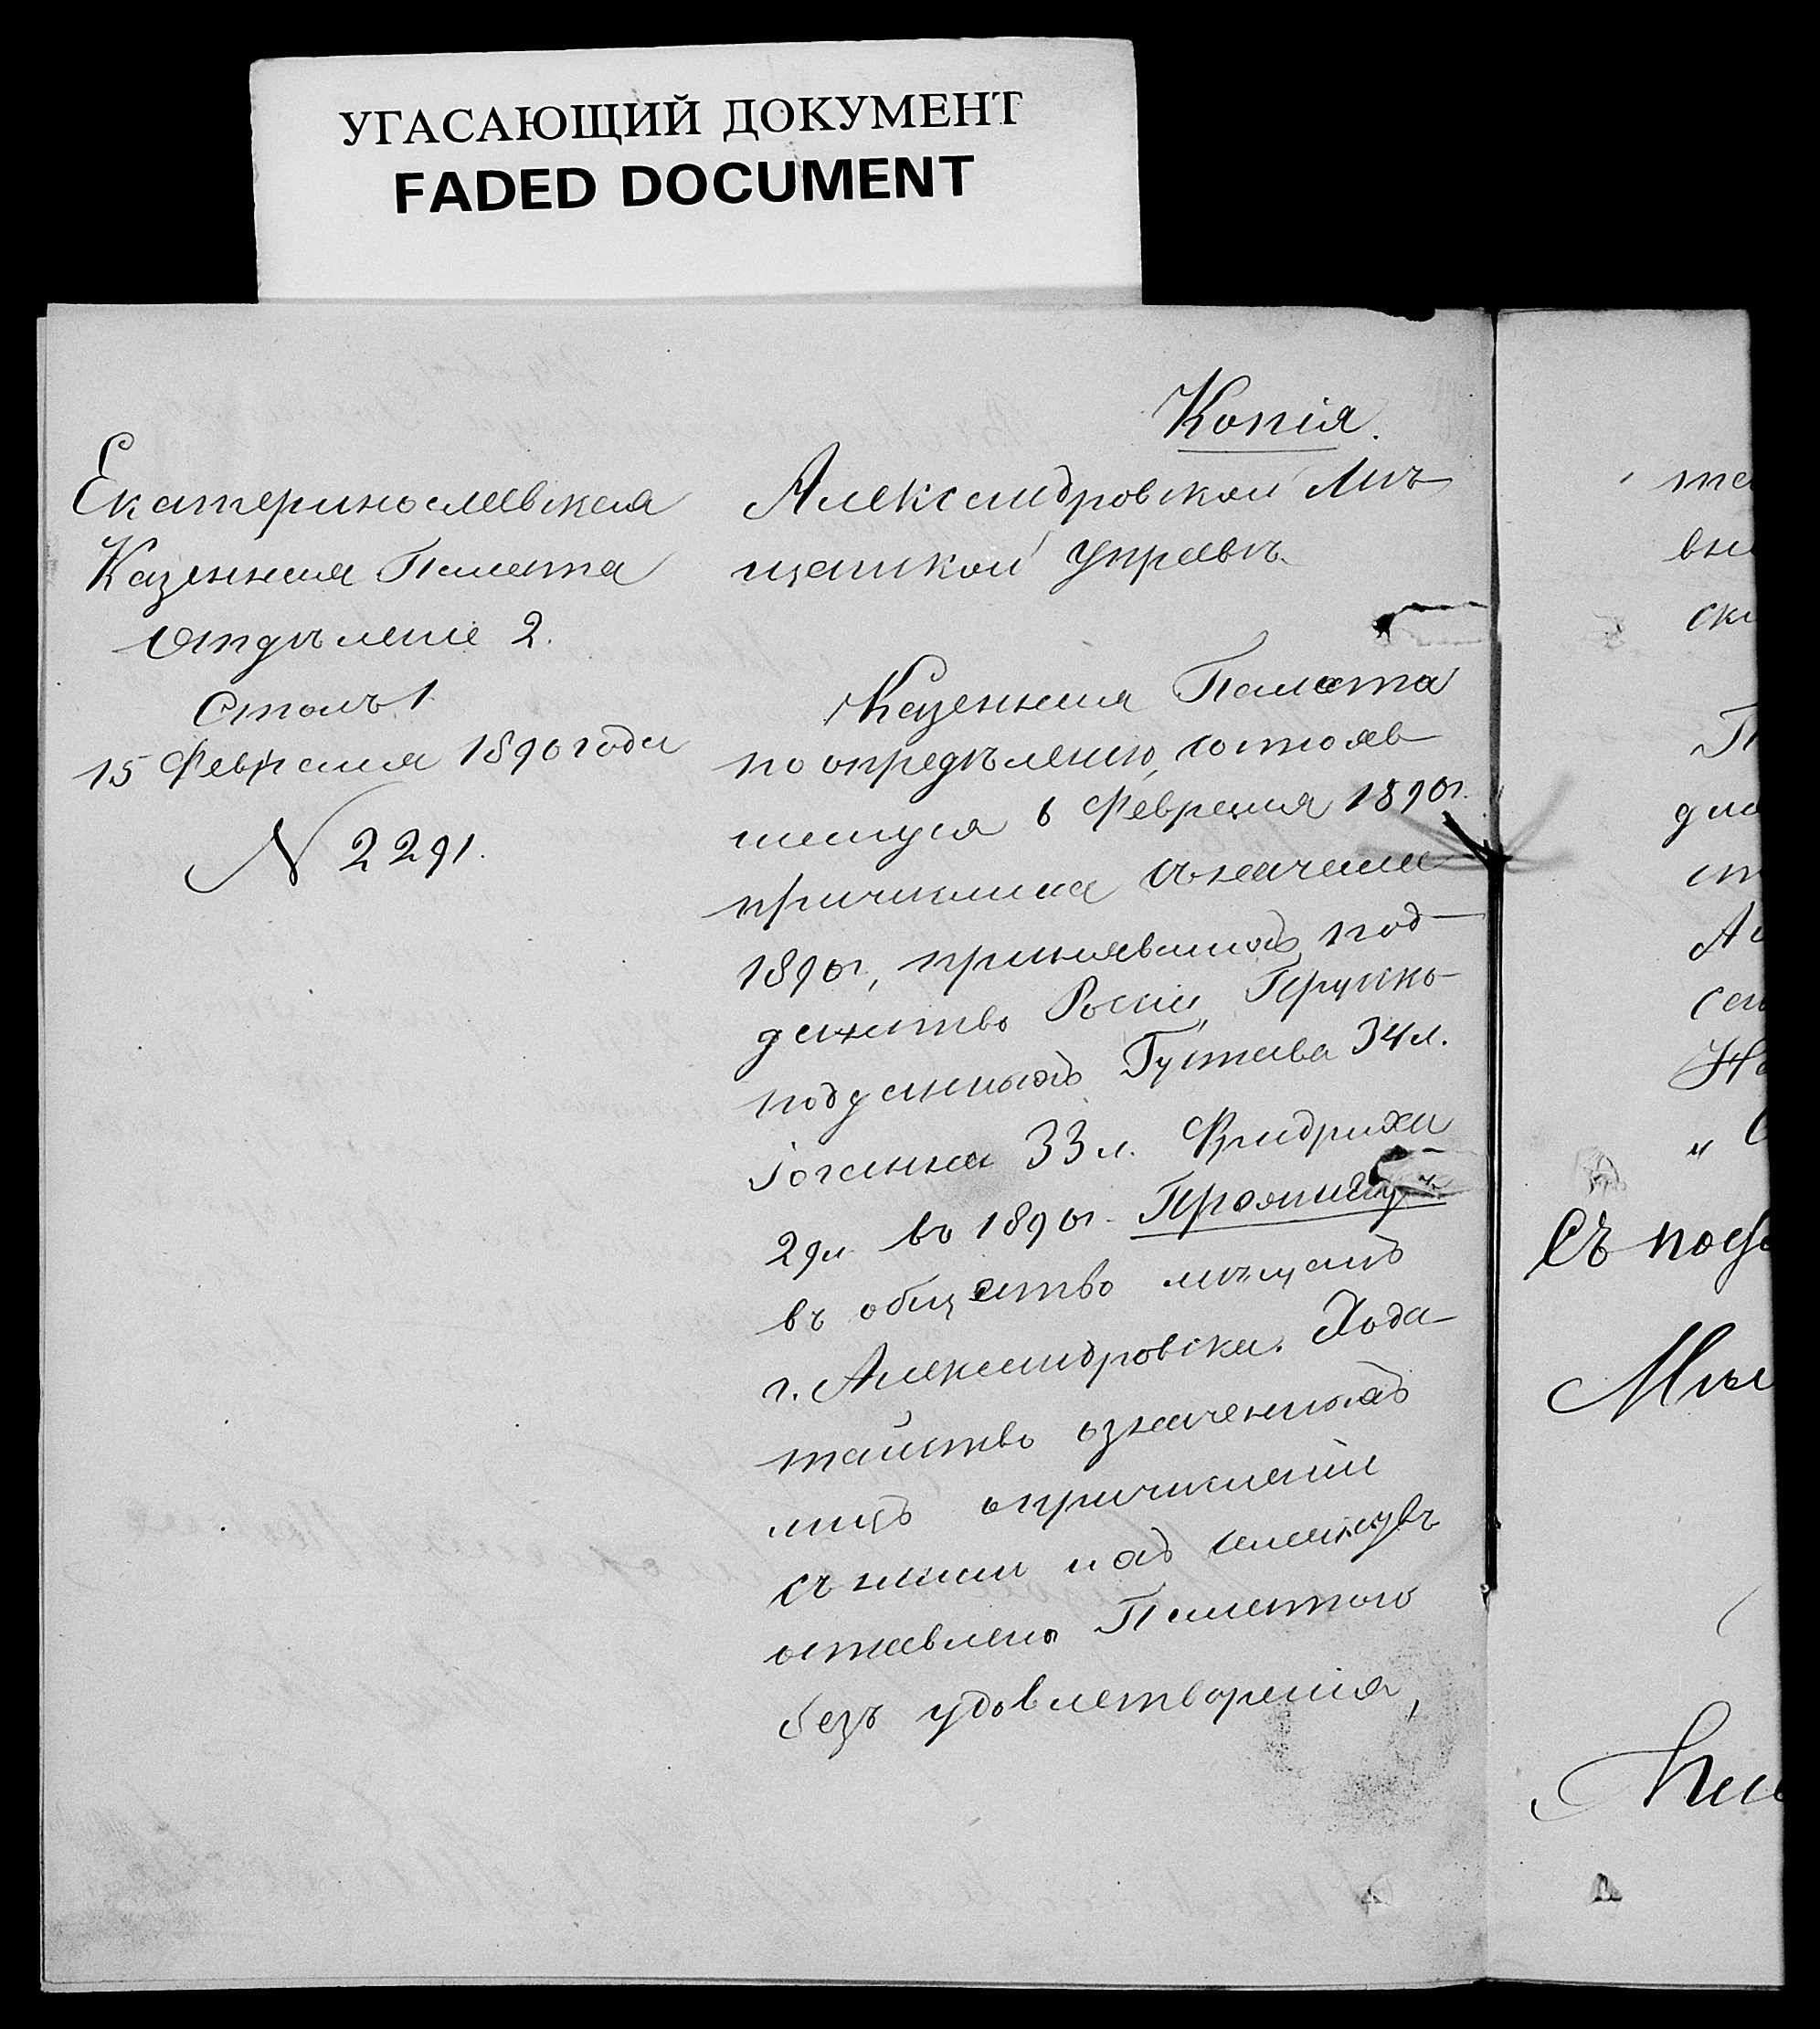 УГАСАЮЩИЙ ДОКУМЕНТ
FADED DOCUMENT
Копія.
Екатеринославская
Казенная Палата
Отдѣленіе 2.
Столъ 1
15 Февраля 1890 года
N 2291.
Александровской Мѣ-
щанской Управѣ.
Казенная Палата
по опредѣленію, состояв-
шемуся 6 Февраля 1890г.
причислила съ начала
1890г., принявшихъ под-
данство Россіи, Прусско-
подданныхъ Густава 34л.
Іоганна 33л. Фридриха
29л въ 1890г.
въ общество мѣщанъ
г. Александровска. Хода-
тайство означенныхъ
лицъ опричисленіи
съ ними ихъ семействъ
оставлено Палатою
безъ удовлетворенія,
Съ